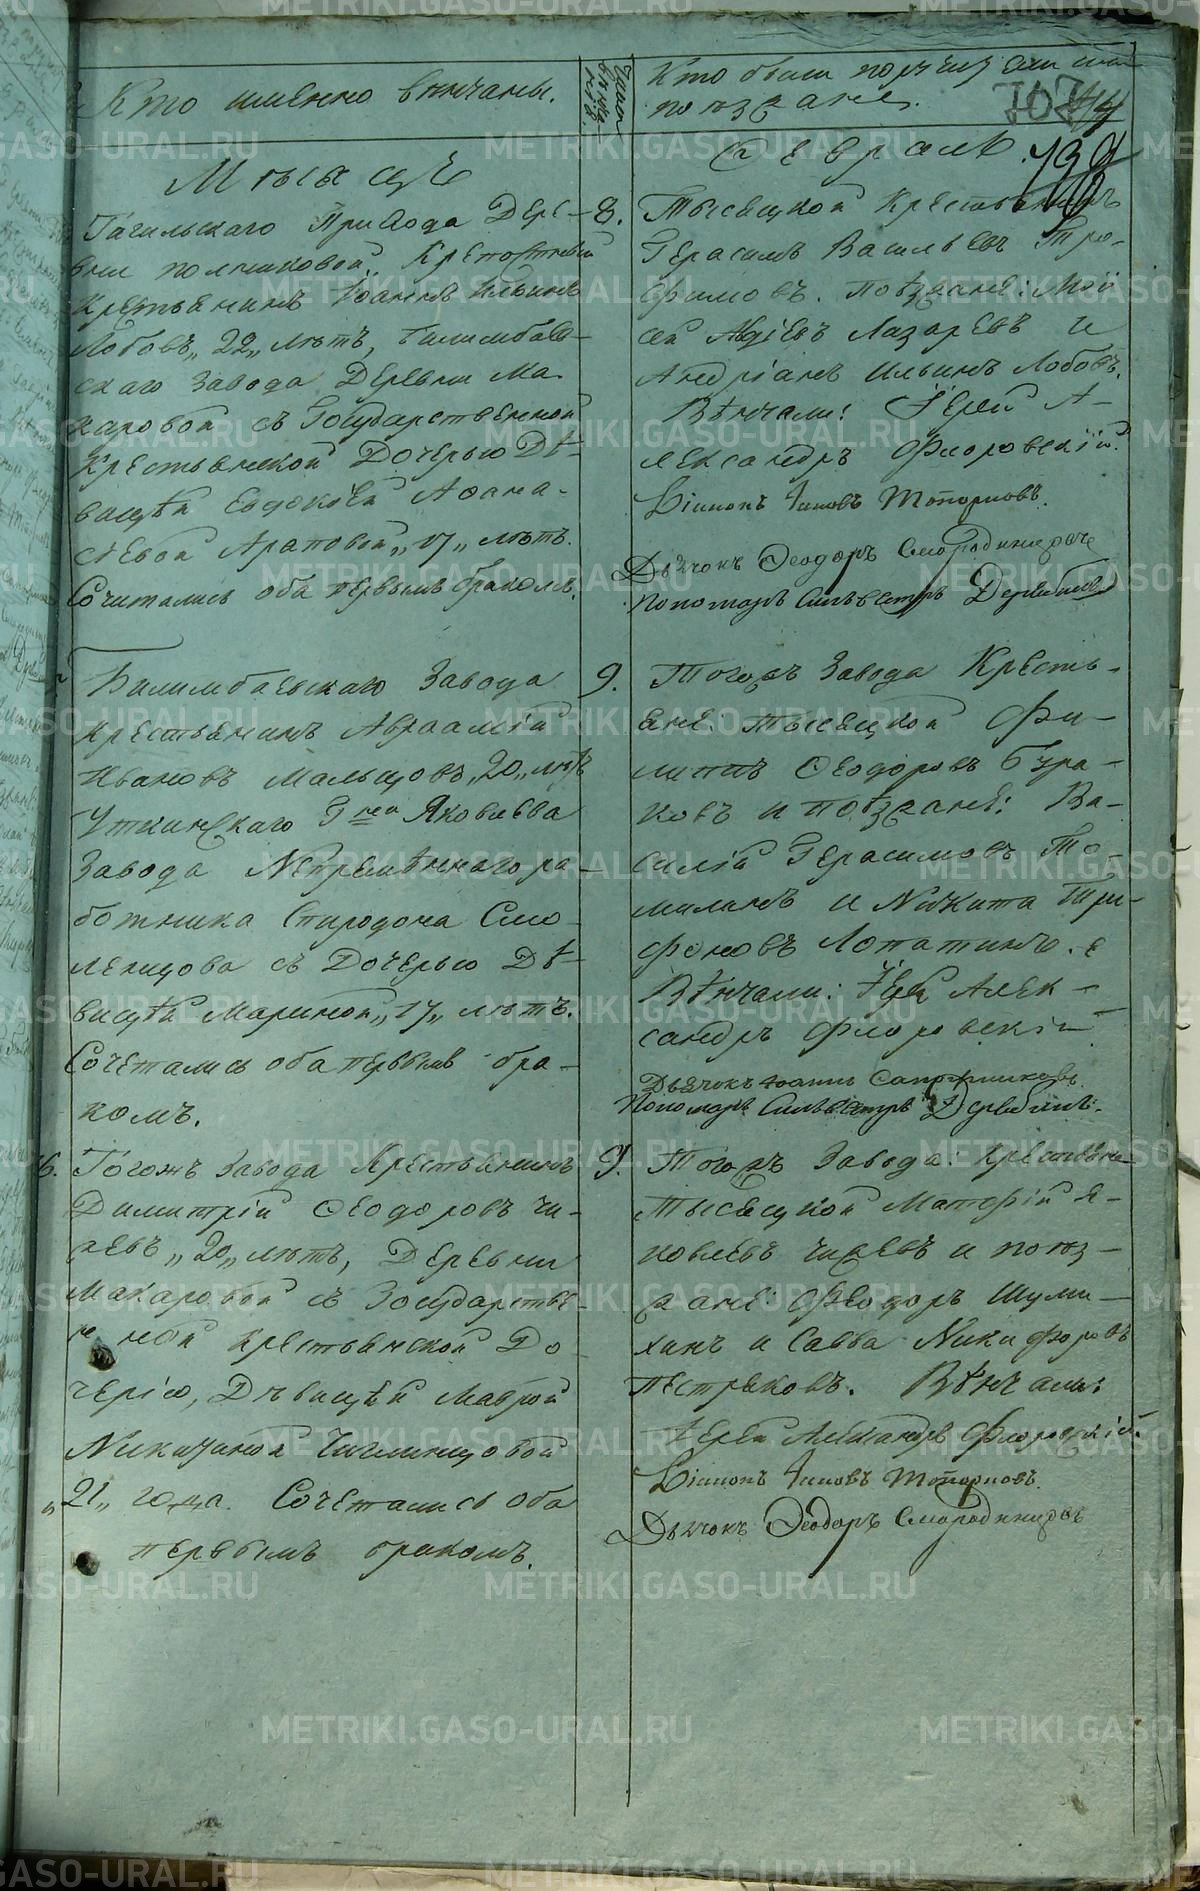 Кто именно венчаны.
Число
Кто были поручители или
поѣзжане.
Мѣсяцъ
Февраль
Тагильскаго Прихода Дере-
вни
Крестьянинъ Іоаннъ Ильинъ
Лобовъ „22„ лѣтъ, Билимбаев-
скаго Завода Деревни Ма-
каровой съ Государственной
Крестьянской Дочерью Дѣ-
вицѣй Евдокіей Афана-
сьевой Араповой „17„ лѣтъ.
Сочитались оба первымъ бракомъ.
8. Тысецкой Крестьянинъ
Герасимъ Васильевъ Тро-
фимовъ. Поѣзжане: Мои-
сей Авдіевъ Лазаревъ и
Андріанъ Ильинъ Лобовъ.
Вѣнчали: Іерей А-
лександръ Флоровскій.
Діаконъ Іаковъ Топорковъ.
Дьячокъ Ѳеодоръ
Пономарь Сильвестръ Дерябинъ
Билимбаевскаго Завода
Крестьянинъ Авраамій
Ивановъ Мальцовъ „20„ лѣтъ
Уткинскаго Г-на Яковлева
Завода Непремѣннаго ра-
ботника Спиридона Смо-
ленцова съ Дочерью Дѣ-
вицѣй Мариной „17„ лѣтъ.
Сочетались оба первымъ бра-
комъ.
9. Тогожъ Завода Кресть-
яне: Тысецкой Фи-
липпъ Ѳеодоровъ Бура-
ковъ и поѣзжане: Ва-
силій Герасимовъ То-
миланъ и Никита Три-
фоновъ Лопатинъ.
Вѣнчали: Іерей Алек-
сандръ Флоровскій
Дьячокъ Іоаннъ Сапожниковъ
Пономарь Сильвестръ Дерябинъ.
6. Тогожъ Завода Крестьянинъ
Димитрій Ѳеодоровъ Чи-
жевъ „20„ лѣтъ, Деревни
Макаровой съ Государстве-
нной Крестьянской До-
черію, Дѣвицѣй Маврой
Никитиной
„21„ года. Сочетались оба
первымъ бракомъ.
9. Тогожъ Завода: Крестьяне
Тысецкой Матфій Я-
ковлевъ Чижевъ и поѣз-
жане: Феодоръ Шуми-
хинъ и Савва Никифоровъ
Пестряковъ. Вѣнчали:
Іерей Александръ Флоровскій.
Діаконъ Іаковъ Топорковъ.
Дьячокъ Ѳеодоръ